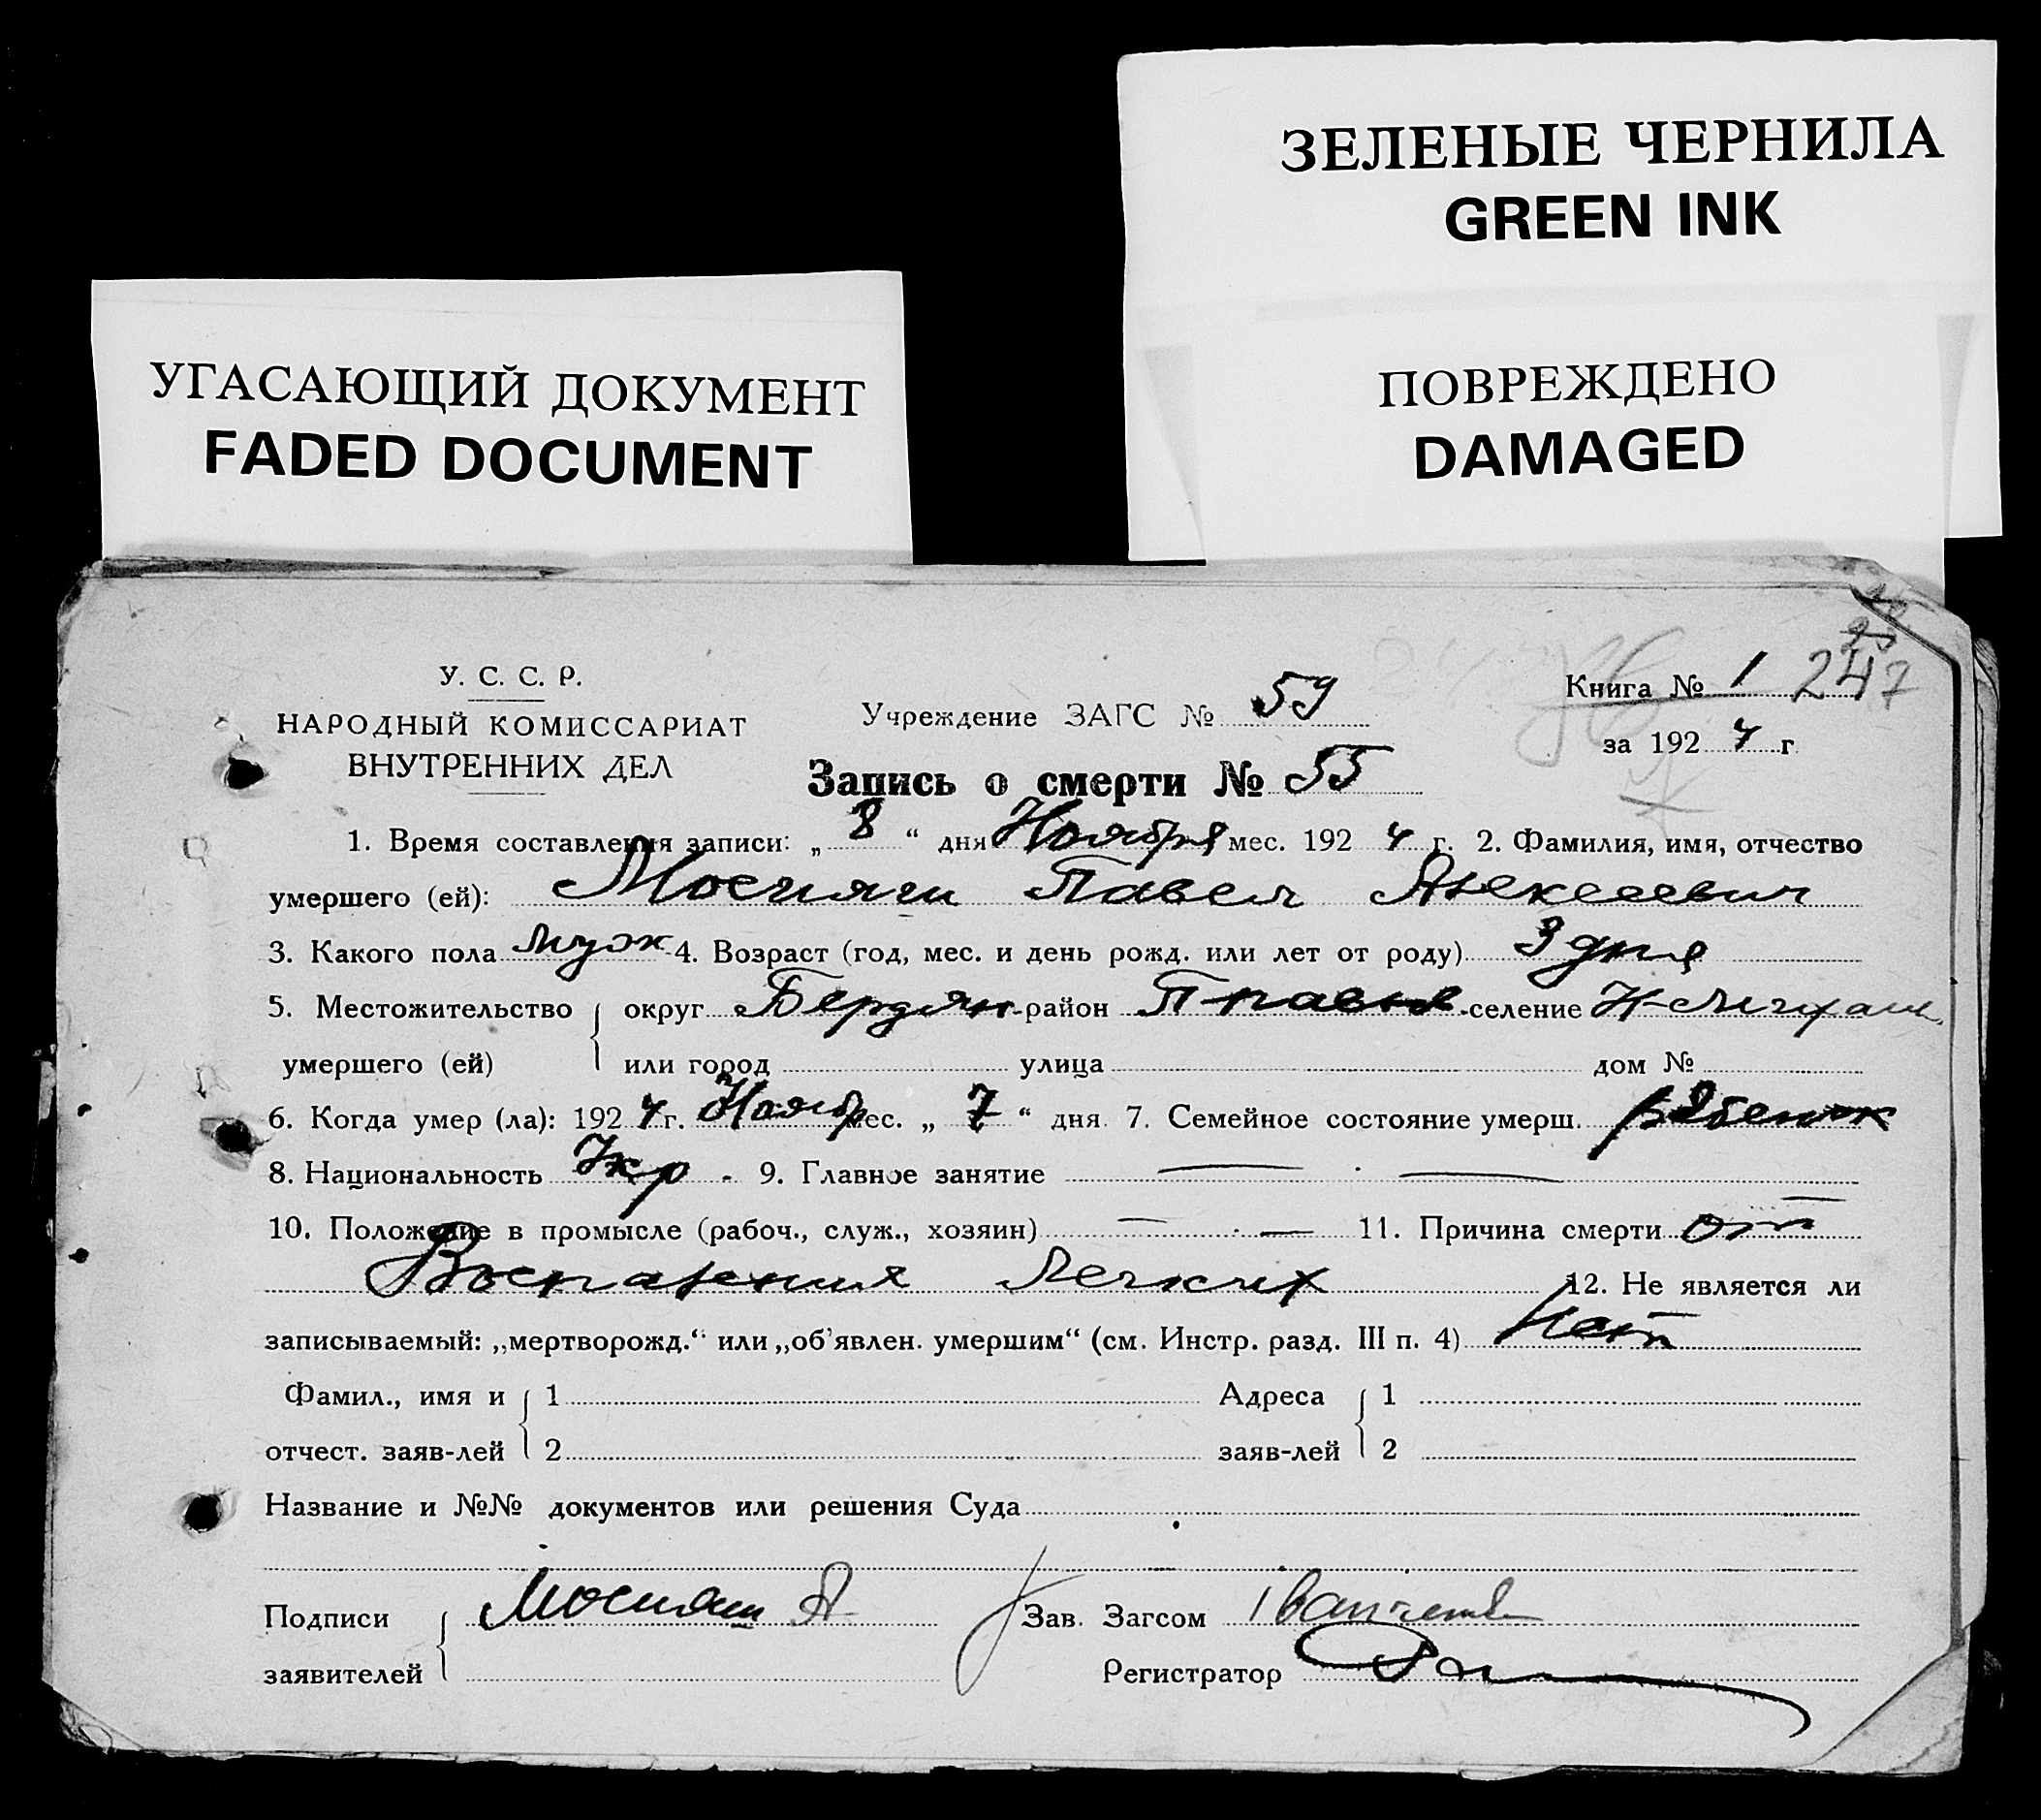 ЗЕЛЕНЫЕ ЧЕРНИЛА
GREEN INK
УГАСАЮЩИЙ ДОКУМЕНТ
FADED DOCUMENT
ПОВРЕЖДЕНО
DAMAGED
У. С. С. Р.
НАРОДНЫЙ КОМИССАРИАТ
ВНУТРЕННИХ ДЕЛ
Учреждение ЗАГС № 59
Книга № 1 247
за 1924 г.
Запись о смерти № 55
1. Время составления записи: „8“ дня Ноября мес. 1924 г. 2. Фамилия, имя, отчество
умершего (ей): Павел Алексеевич
3. Какого пола муж 4. Возраст (год, мес. и день рожд. или лет от роду) 3 дня
5. Местожительство округ Бердян. район селение
умершего (ей) или город улица дом №
6. Когда умер (ла): 1924 г. Ноябр мес. „7“ дня. 7. Семейное состояние умерш. рябенок
8. Национальность Укр. 9. Главное занятие —
10. Положение в промысле (рабоч., служ., хозяин) — 11. Причина смерти от
Воспаления Легких 12. Не является ли
записываемый: „мертворожд.“ или „об'явлен. умершим“ (см. Инстр. разд. III п. 4) Нет
Фамил., имя и 1 Адреса 1
отчест. заяв-лей 2 заяв-лей 2
Название и №№ документов или решения Суда
Подписи А Зав. Загсом
заявителей Регистратор